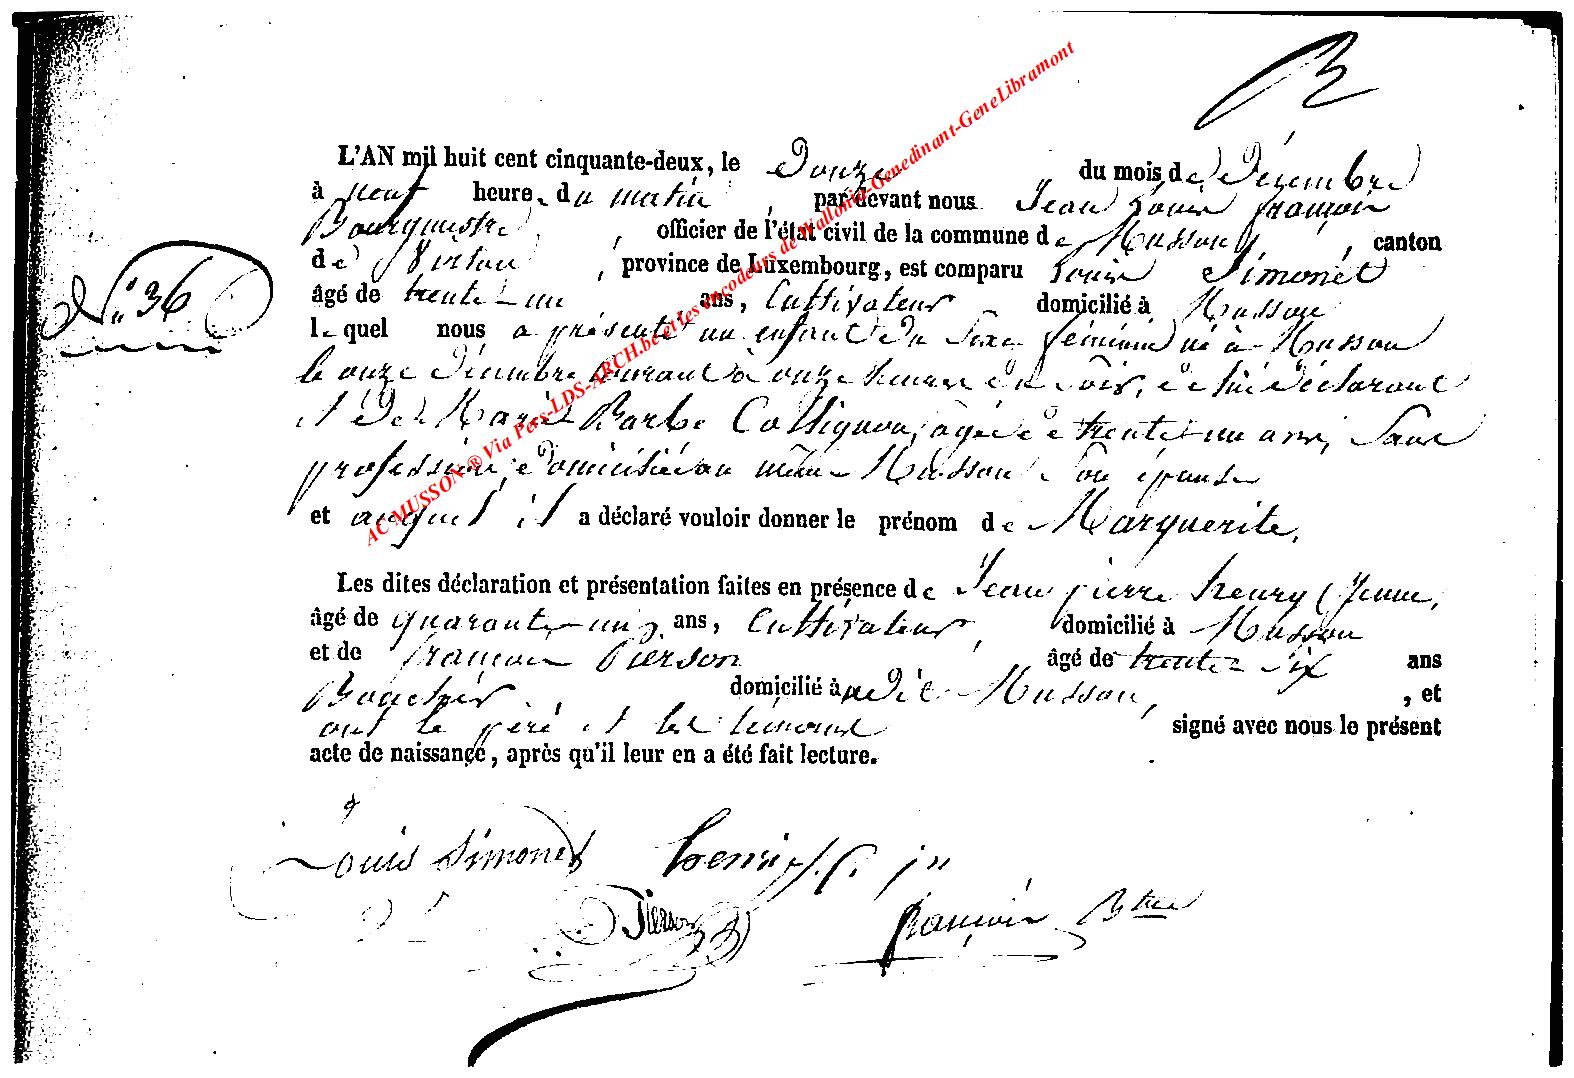 L'AN mil huit cent cinquante-deux, le Douze du mois de Décembre
à neuf heures du matin, par devant nous Jean Louis François
Bourgmestre, officier de l'état civil de la commune de Musson, canton
de Virton, province de Luxembourg, est comparu Louis Simonet
N° 36
âgé de trente-un ans, Cultivateur domicilié à Musson
lequel nous a présenté un enfant du sexe féminin né à Musson
le onze Décembre courant à onze heures du soir, de lui déclarant
et de Marie Barbe Collignon, âgée de trente-un ans, Sans
profession, domiciliée au même Musson Son épouse
et auquel il a déclaré vouloir donner le prénom de Marguerite.
Les dites déclaration et présentation faites en présence de Jean pierre henry (Jeune,
âgé de quarante-un ans, Cultivateur, domicilié à Musson
et de françois Pierson âgé de trente Six ans
Boucher, domicilié audit Musson, , et
ont le père et les témoins signé avec nous le présent
acte de naissance, après qu'il leur en a été fait lecture.
Louis Simonet henri J. P. jn
Pierson françois Btre
AC MUSSON ® Via Pers-LDS-ARCH.be et les encodeurs de Wallonia-Genedinant-GeneLibramont